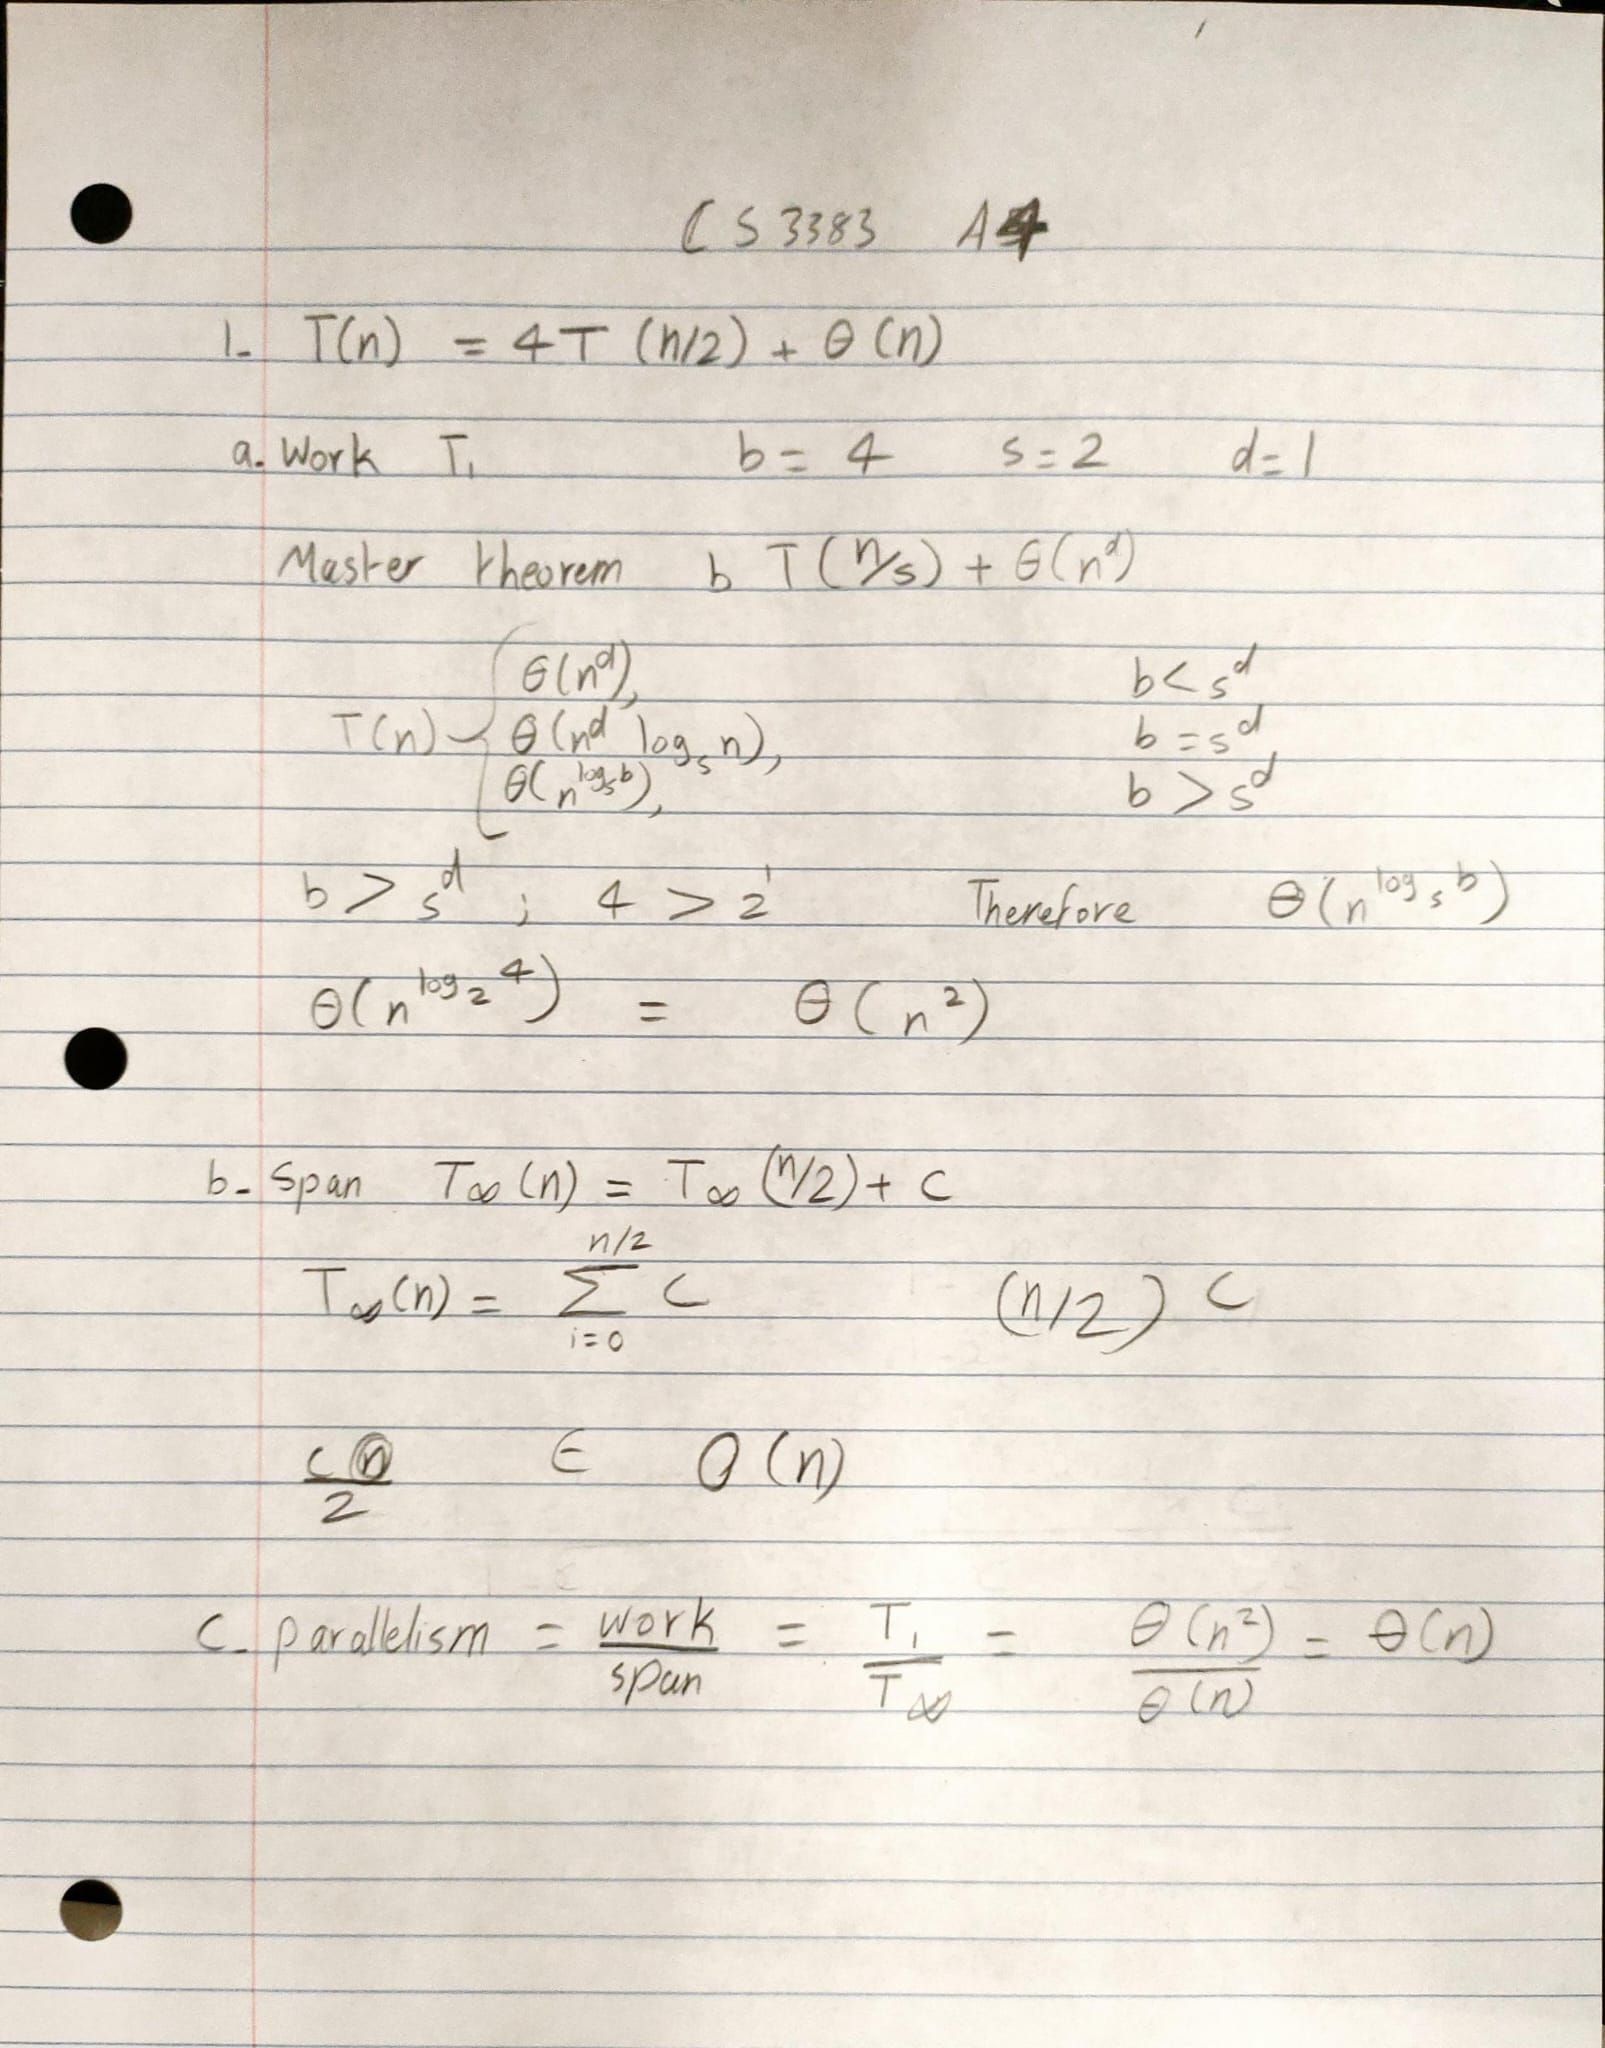 CS 3383 A4
1- T(n) = 4T (n/2) + Θ (n)
a. Work T₁ b = 4 s = 2 d = 1
Master theorem b T (n/s) + Θ(nᵈ)
Θ(nᵈ), b < sᵈ
T(n) { Θ (nᵈ logₛ n), b = sᵈ
Θ(n^(logₛ b)), b > sᵈ
b > sᵈ ; 4 > 2¹ Therefore Θ (n^(logₛ b))
Θ(n^(log₂ 4)) = Θ (n²)
b- Span T∞ (n) = T∞ (n/2) + C
n/2
T∞ (n) = Σ C (n/2) C
i=0
cn/2 ∈ Θ (n)
C- parallelism = work/span = T₁/T∞ = Θ (n²)/Θ (n) = Θ (n)